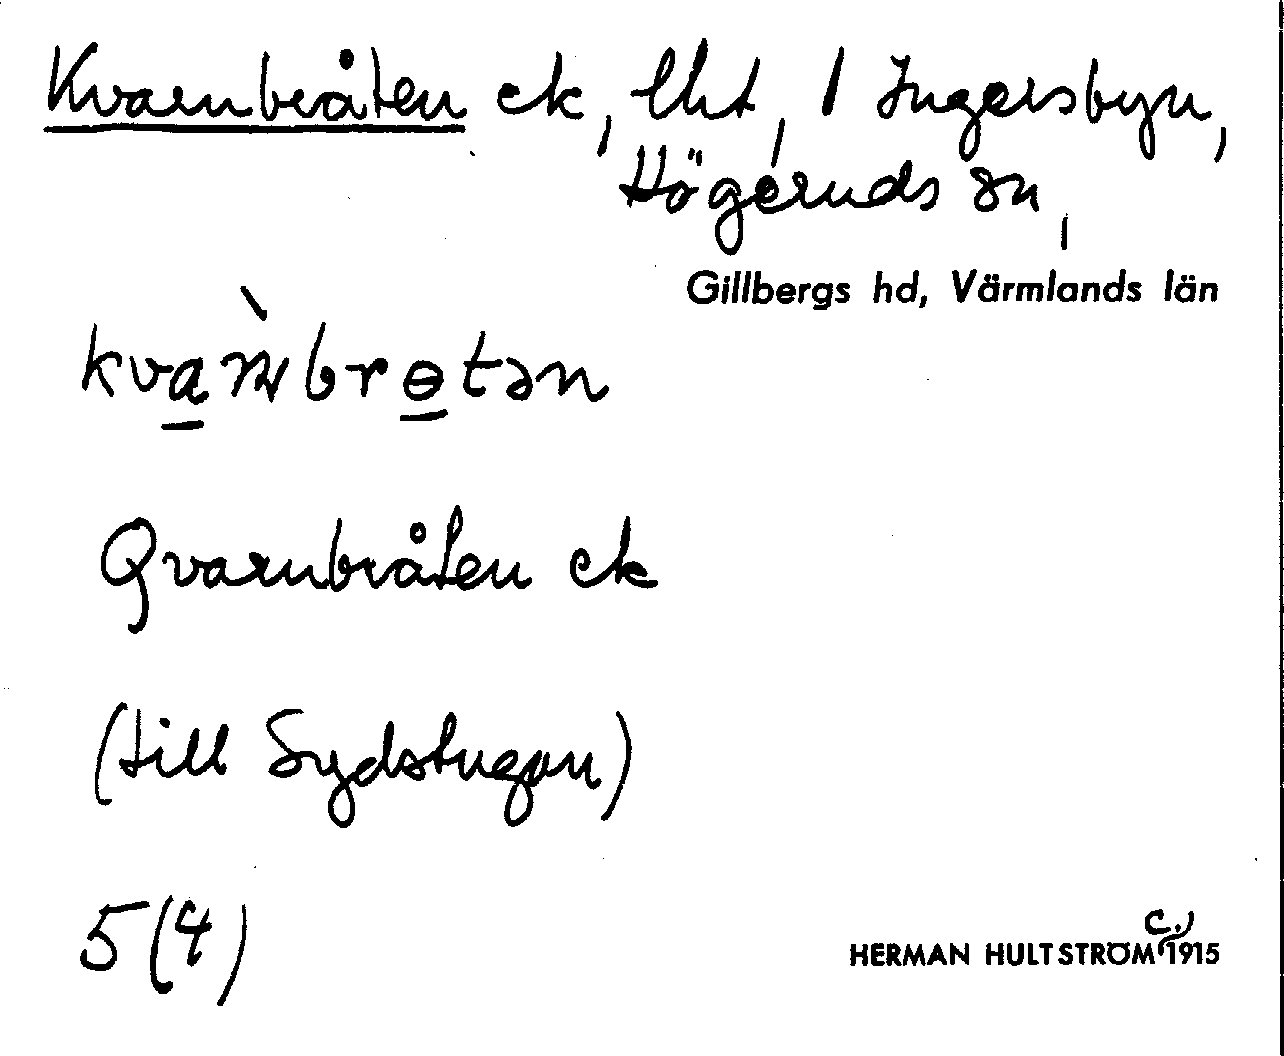 Kvarnbråten ek, lht, 1 Ingersbyn,
Högeruds sn,
Gillbergs hd, Värmlands län
kvam̀brɵtən
Qvarnbråten ek
(till Sydstugan)
5(4)
HERMAN HULTSTRÖM (c.) 1915